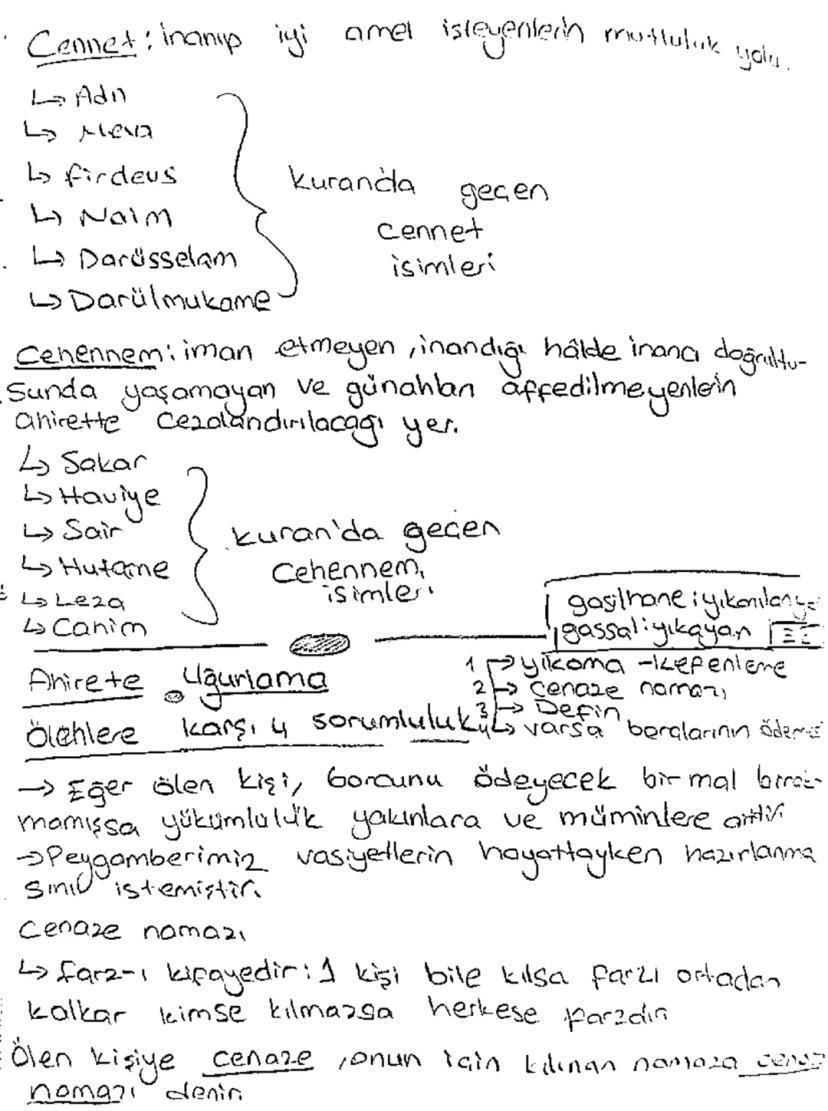 Cennet: inanıp iyi amel işleyenlerin mutluluk yolu.
↳ Adn
↳ Meva
↳ firdevs
↳ Naim
↳ Darüsselam
↳ Darülmukame
kuranda geçen
cennet
isimleri
Cehennem: iman etmeyen, inandığı hâlde inancı doğrultu-
sunda yaşamayan ve günahları affedilmeyenlerin
ahirette cezalandırılacağı yer.
↳ Sakar
↳ Haviye
↳ Sair
↳ Hutame
↳ Leza
↳ Cahim
kuran'da geçen
Cehennem
isimleri
gasilhane: yıkanılan
gassal: yıkayan
Ahirete Uğurlama
Ölenlere karşı 4 sorumluluk
1 → yıkama - kefenleme
2 → cenaze namazı
3 → Defin
4 → varsa borçlarının ödeme
→ Eğer ölen kişi, borcunu ödeyecek bir mal bırak-
mamışsa yükümlülük yakınlara ve müminlere aittir
→ Peygamberimiz vasiyetlerin hayattayken hazırlanma
sını istemiştir.
Cenaze namazı
↳ farz-ı kifayedir: 1 kişi bile kılsa farzı ortadan
kalkar kimse kılmazsa herkese farzdır
Ölen kişiye cenaze, onun için kılınan namaza cenaze
namazı denir